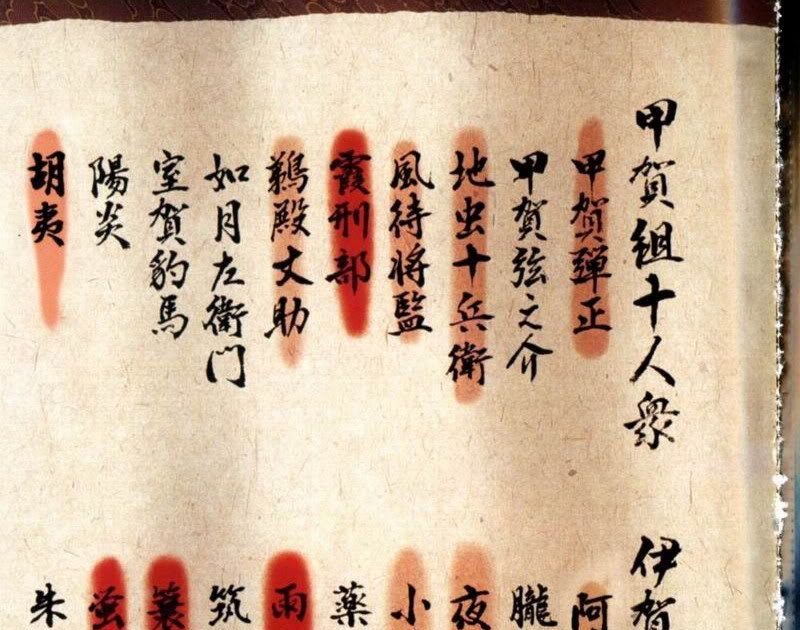 甲賀組十人衆
甲賀彈正
甲賀弦之介
地虫十兵衛
風待将監
霞刑部
鵜殿丈助
如月左衛門
室賀豹馬
陽炎
胡夷
伊賀
阿
朧
夜
小
薬
雨
筑
蓑
蛍
朱